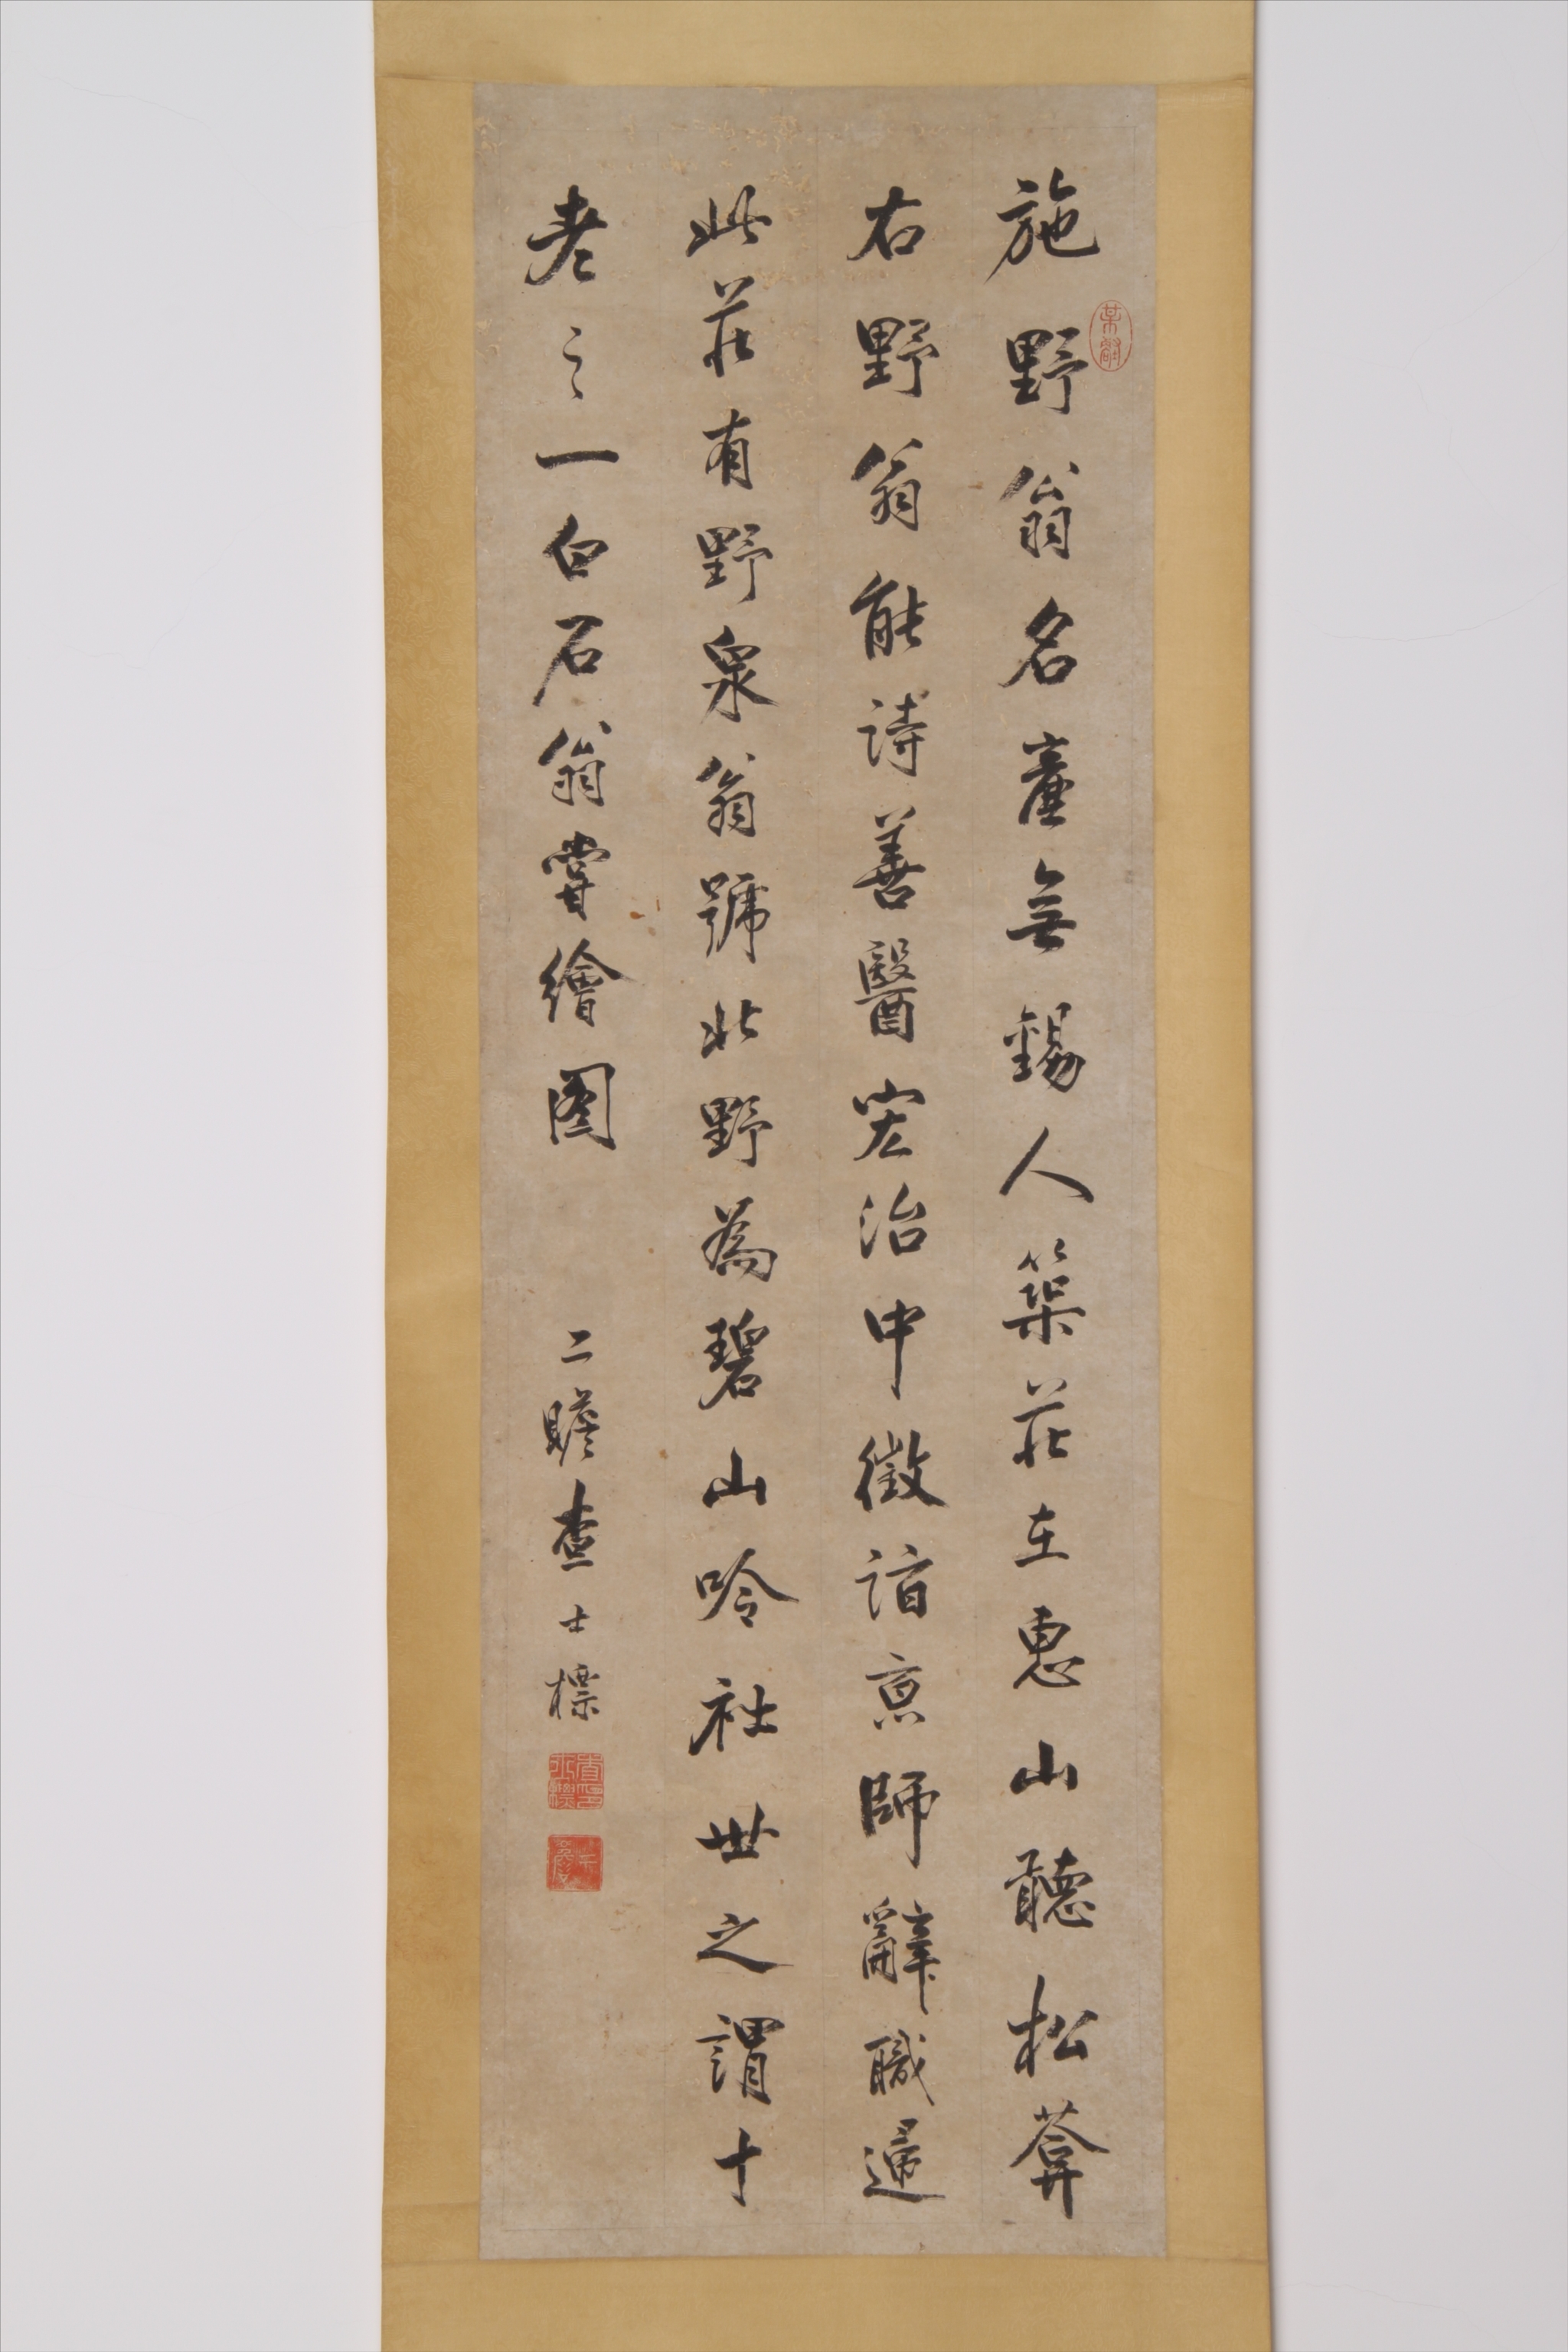 施野翁名無錫人築莊在惠山聽松葊
右野翁能詩善醫宏治中徵詣京師辭職歸
此莊有野泉翁號北野為碧山吟社世之謂十
老之一白石翁嘗繪圖 二瞻查士標